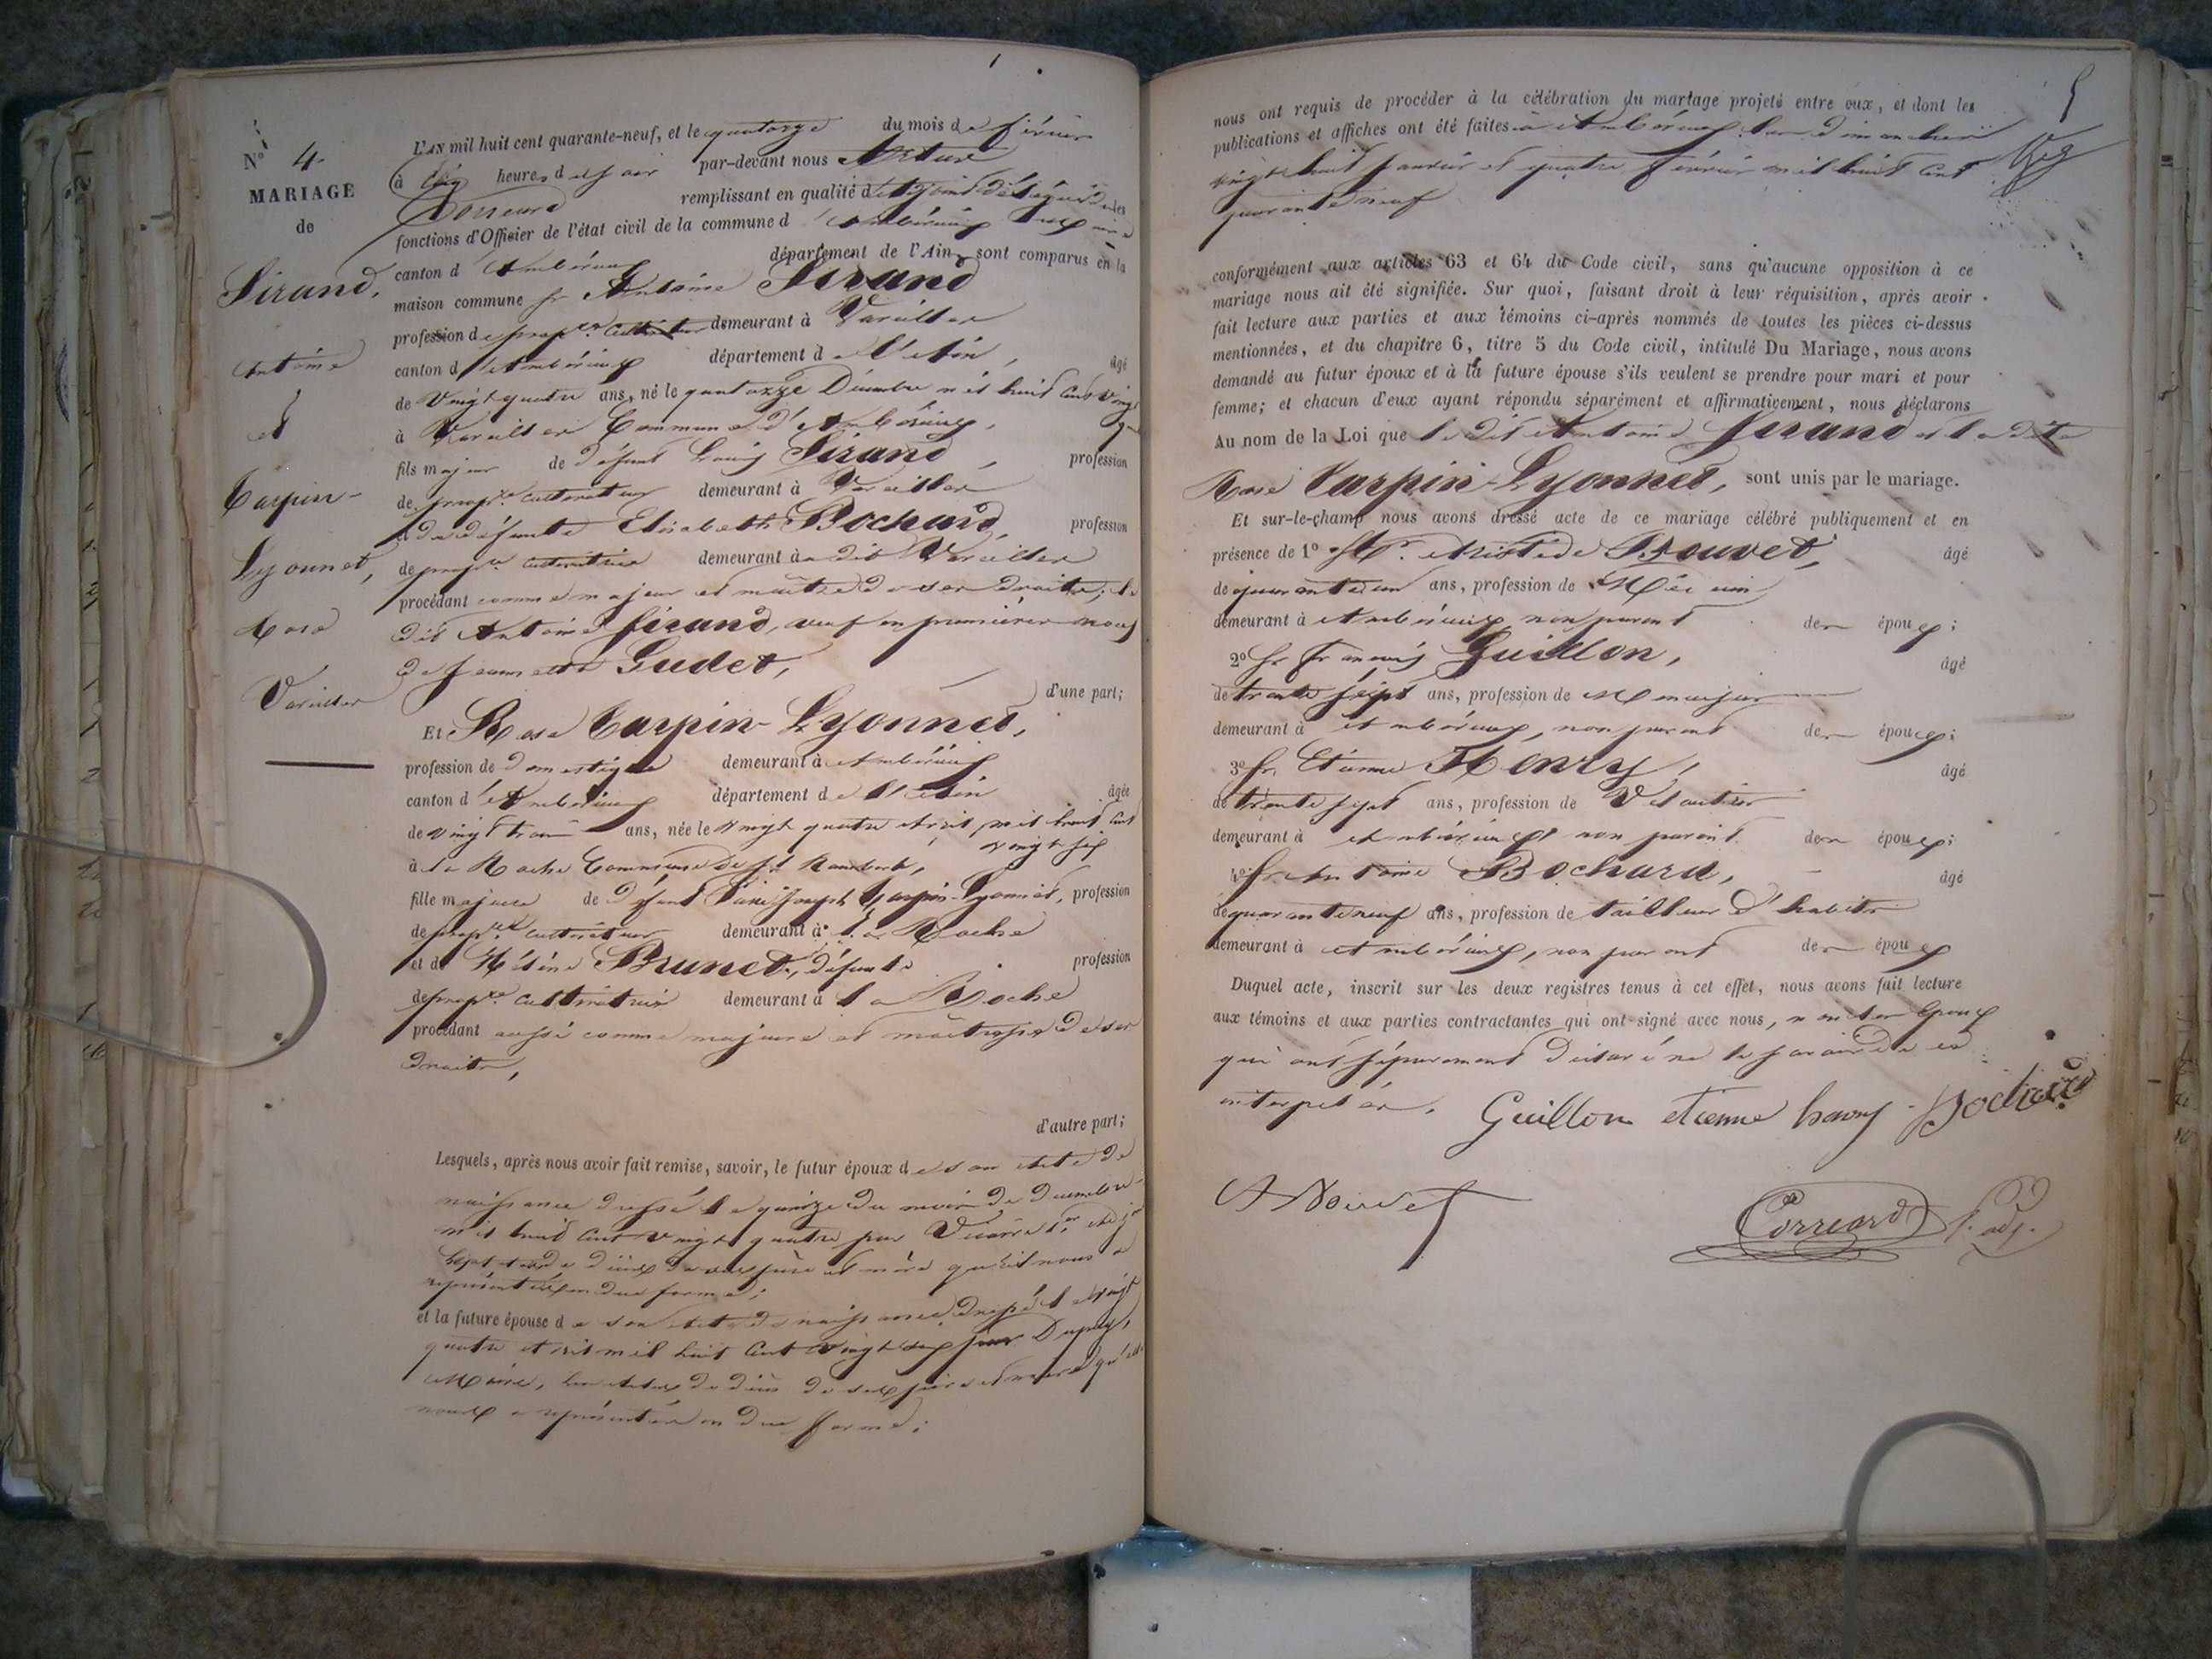 N° 4
MARIAGE
de
Sirand,
Antoine
et
Carpin-
Lyonnet,
Rose
Vareilles
L'AN mil huit cent quarante-neuf, et le quatorze du mois de février
à cinq heures du soir par-devant nous
Correard remplissant en qualité d'adjoint délégué les
fonctions d'Officier de l'état civil de la commune d'Ambérieux
canton d'Ambérieux département de l'Ain, sont comparus en la
maison commune sr Antoine Sirand
profession de propre cultivateur demeurant à Vareilles
canton d'Ambérieux département de l'Ain, âgé
de vingt quatre ans, né le quatorze Décembre mil huit cent vingt
à Vareilles Commune d'Ambérieux,
fils majeur de défunt Louis Sirand, profession
de propre cultivateur demeurant à Vareilles
et de défunte Elisabeth Bochard, profession
de propre cultivatrice demeurant à dit Vareilles
procédant comme majeur et maître de ses droits; le
dit Antoine Sirand, veuf en premières noces
de Jeannette Gudet,
d'une part;
Et Rose Carpin-Lyonnet,
profession de domestique demeurant à Ambérieux
canton d'Ambérieux département de l'Ain âgée
de vingt trois ans, née le vingt quatre Avril mil huit cent
vingt six
à la Roche Commune de St Rambert,
fille majeure de défunt Joseph Carpin-Lyonnet, profession
de propre cultivateur demeurant à la Roche
et de Hélène Brunet, défunte profession
de propre cultivatrice demeurant à la Roche
procédant aussi comme majeure et maîtresse de ses
droits,
d'autre part;
Lesquels, après nous avoir fait remise, savoir, le futur époux de son Acte de
naissance dressé le quinze du mois de Décembre
mil huit cent vingt quatre par
de décès de ses père et mère qu'il nous a
représentés en due forme;
et la future épouse de son Acte de naissance dressé le vingt
quatre Avril mil huit cent vingt six par Dupuy,
Maire, les Actes de décès de ses père et mère qu'elle
nous a représentés en due forme;
nous ont requis de procéder à la célébration du mariage projeté entre eux, et dont les
publications et affiches ont été faites à Ambérieux les dimanches
vingt huit janvier et quatre février mil huit cent
quarante neuf
conformément aux articles 63 et 64 du Code civil, sans qu'aucune opposition à ce
mariage nous ait été signifiée. Sur quoi, faisant droit à leur réquisition, après avoir
fait lecture aux parties et aux témoins ci-après nommés de toutes les pièces ci-dessus
mentionnées, et du chapitre 6, titre 5 du Code civil, intitulé Du Mariage, nous avons
demandé au futur époux et à la future épouse s'ils veulent se prendre pour mari et pour
femme; et chacun d'eux ayant répondu séparément et affirmativement, nous déclarons
Au nom de la Loi que le dit Antoine Sirand et la dite
Rose Carpin-Lyonnet, sont unis par le mariage.
Et sur-le-champ nous avons dressé acte de ce mariage célébré publiquement et en
présence de 1° Mr Aristide Bouvet, âgé
de quarante un ans, profession de Médecin
demeurant à Ambérieux non parent des époux;
2° Sr François Guillon, âgé
de trente sept ans, profession de Menuisier
demeurant à Ambérieux, non parent des époux;
3° Sr Etienne Henry, âgé
de trente sept ans, profession de
demeurant à Ambérieux non parent des époux;
4° Sr Antoine Bochard, âgé
de quarante neuf ans, profession de tailleur d'habits
demeurant à Ambérieux, non parent des époux
Duquel acte, inscrit sur les deux registres tenus à cet effet, nous avons fait lecture
aux témoins et aux parties contractantes qui ont signé avec nous, non les époux
qui ont séparément déclaré ne le savoir de ce
interpelés.
Guillon etienne henry Bochard
A Bouvet
Correard adj.